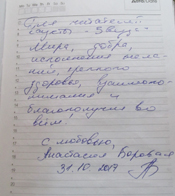 Для читателей
газеты
Мира, добра,
исполнения жела-
ний, крепкого
здоровья, взаимопо-
нимания и
благополучия во
всём!
С любовью,
Анастасия Боровая
31.10 2019